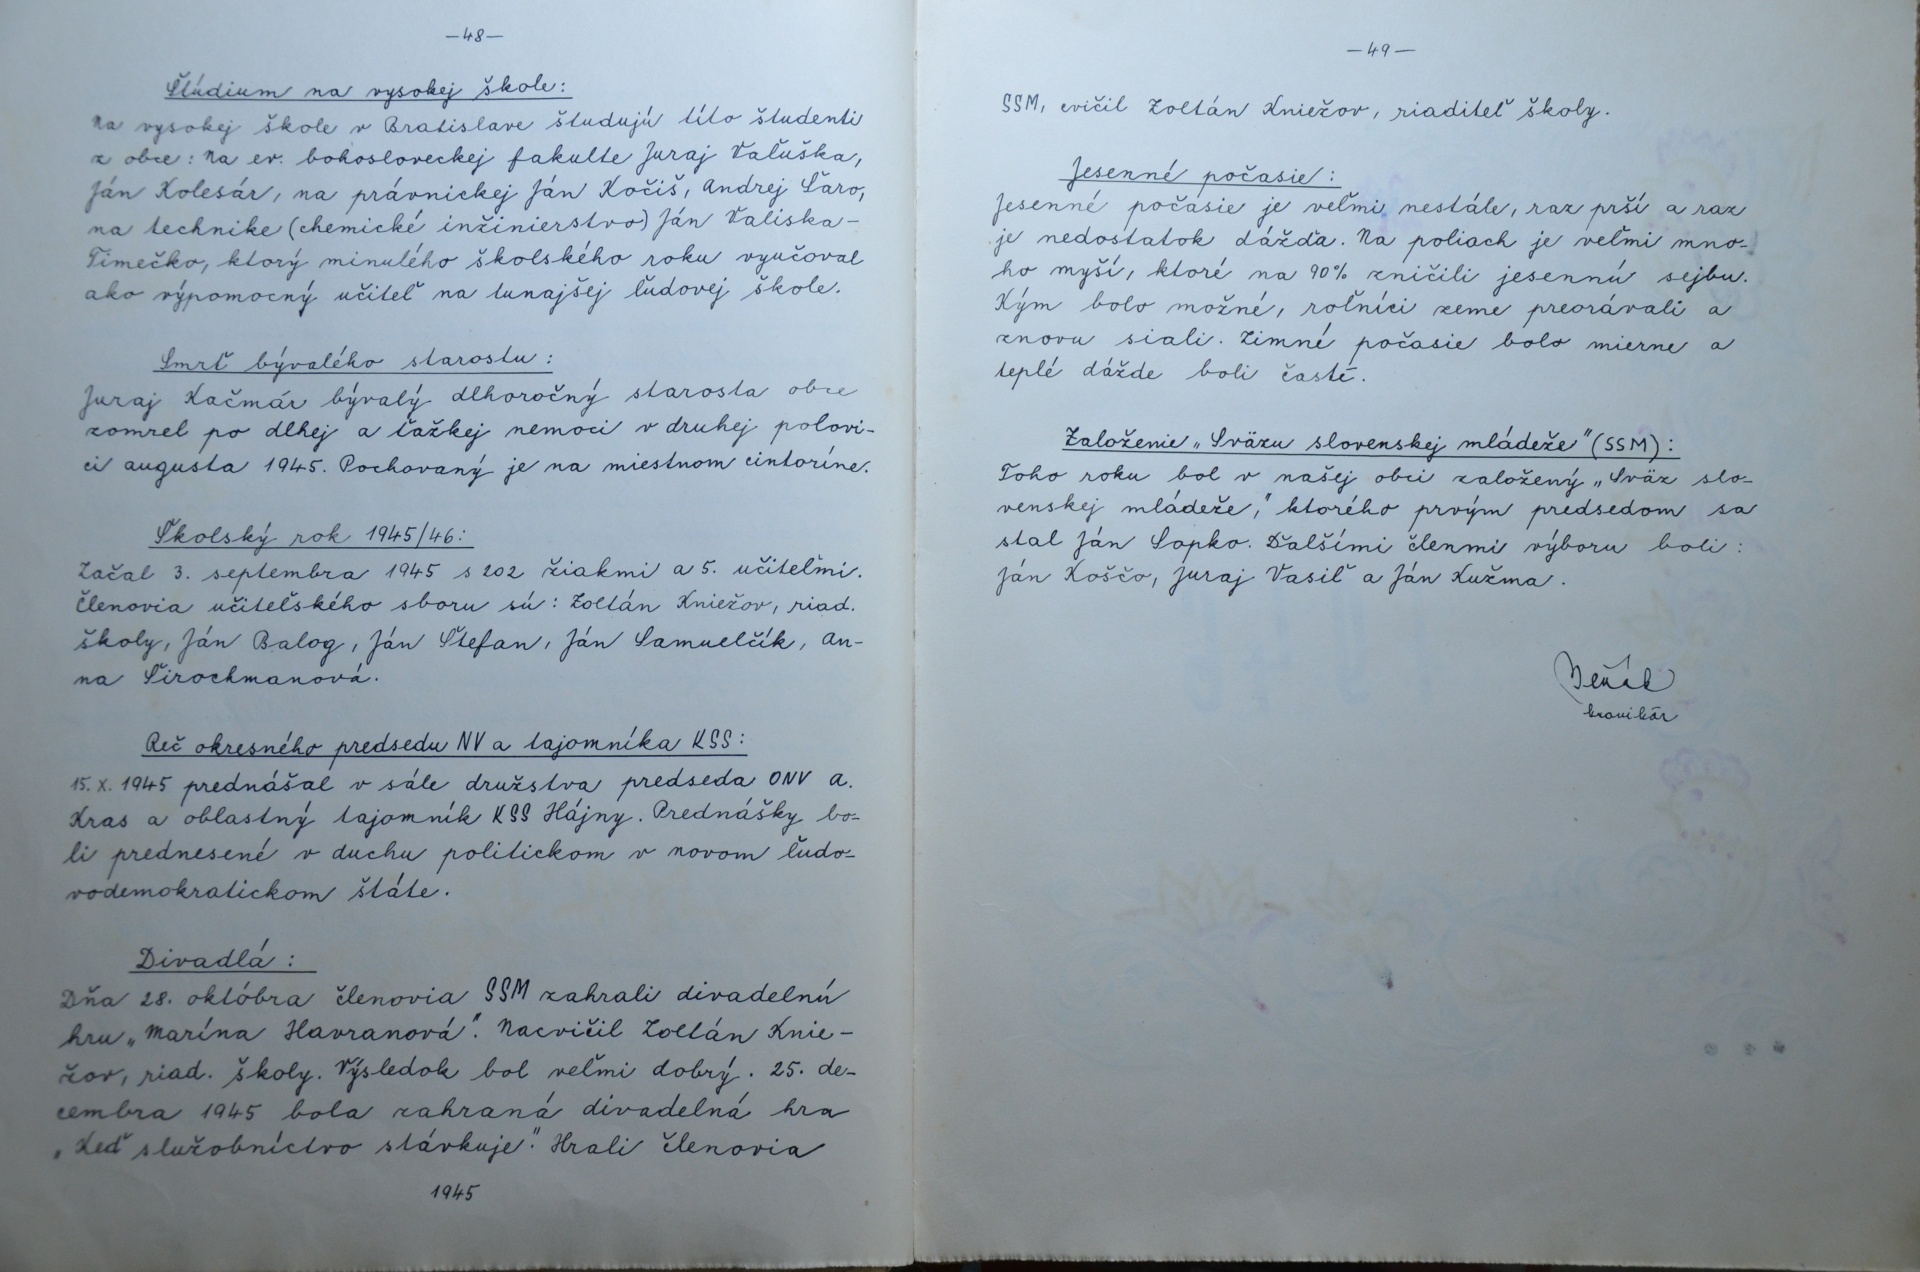 —48—
Štúdium na vysokej škole:
Na vysokej škole v Bratislave študujú títo študenti
z obce: Na ev. bohosloveckej fakulte Juraj Vaľuška,
Ján Kolesár, na právnickej Ján Kočiš, Andrej Šaro,
na technike (chemické inžinierstvo) Ján Valiska-
Timečko, ktorý minulého školského roku vyučoval
ako výpomocný učiteľ na tunajšej ľudovej škole.
Smrť bývalého starostu:
Juraj Kačmár bývalý dlhoročný starosta obce
zomrel po dlhej a ťažkej nemoci v druhej polovi-
ci augusta 1945. Pochovaný je na miestnom cintoríne.
Školský rok 1945/46:
Začal 3. septembra 1945 s 202 žiakmi a 5. učiteľmi.
Členovia učiteľského sboru sú: Zoltán Kniežov, riad.
školy, Ján Balog, Ján Štefan, Ján Samuelčík, An-
na Širochmanová.
Reč okresného predsedu NV a tajomníka KSS:
15. X. 1945 prednášal v sále družstva predseda ONV A.
Kras a oblastný tajomník KSS Hájny. Prednášky bo-
li prednesené v duchu politickom v novom ľudo-
vodemokratickom štáte.
Divadlá:
Dňa 28. októbra členovia SSM zahrali divadelnú
hru „Marína Havranová". Nacvičil Zoltán Knie-
žov, riad. školy. Výsledok bol veľmi dobrý. 25. de-
cembra 1945 bola zahraná divadelná hra
„Keď služobníctvo stávkuje". Hrali členovia
1945
—49—
SSM, cvičil Zoltán Kniežov, riaditeľ školy.
Jesenné počasie:
Jesenné počasie je veľmi nestále, raz prší a raz
je nedostatok dážďa. Na poliach je veľmi mno-
ho myší, ktoré na 90% zničili jesennú sejbu.
Kým bolo možné, roľníci zeme preorávali a
znovu siali. Zimné počasie bolo mierne a
teplé dážde boli časté.
Založenie „Sväzu slovenskej mládeže" (SSM):
Toho roku bol v našej obci založený „Sväz slo-
venskej mládeže," ktorého prvým predsedom sa
stal Ján Sopko. Ďalšími členmi výboru boli:
Ján Koščo, Juraj Vasiľ a Ján Kužma.
kronikár